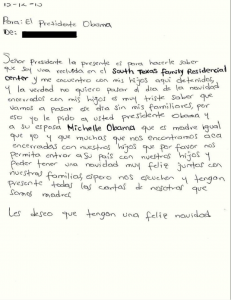 12-12-15
Para: El Presidente Obama
De:
Señor Presidente la presente es para hacerle saber
que soy una recluida en el South Texas Family Residencial
center y me encuentro con mis hijos aqui detenidos,
y la verdad no quiero pasar el dia de la navidad
encerrados con mis hijos es muy triste saber que
vamos a pasar ese dia sin mis familiares, por
eso yo le pido a usted presidente Obama y
a su esposa Michelle Obama que es madre igual
que yo y que muchas que nos encontramos aca
encerradas con nuestros hijos que por favor nos
permita entrar a su país con nuestros hijos y
Poder tener una navidad muy feliz juntos con
nuestras familias, espero nos escuchen y tengan
presente todas las cartas de nosotras que
somos madres
Les deseo que tengan una feliz navidad